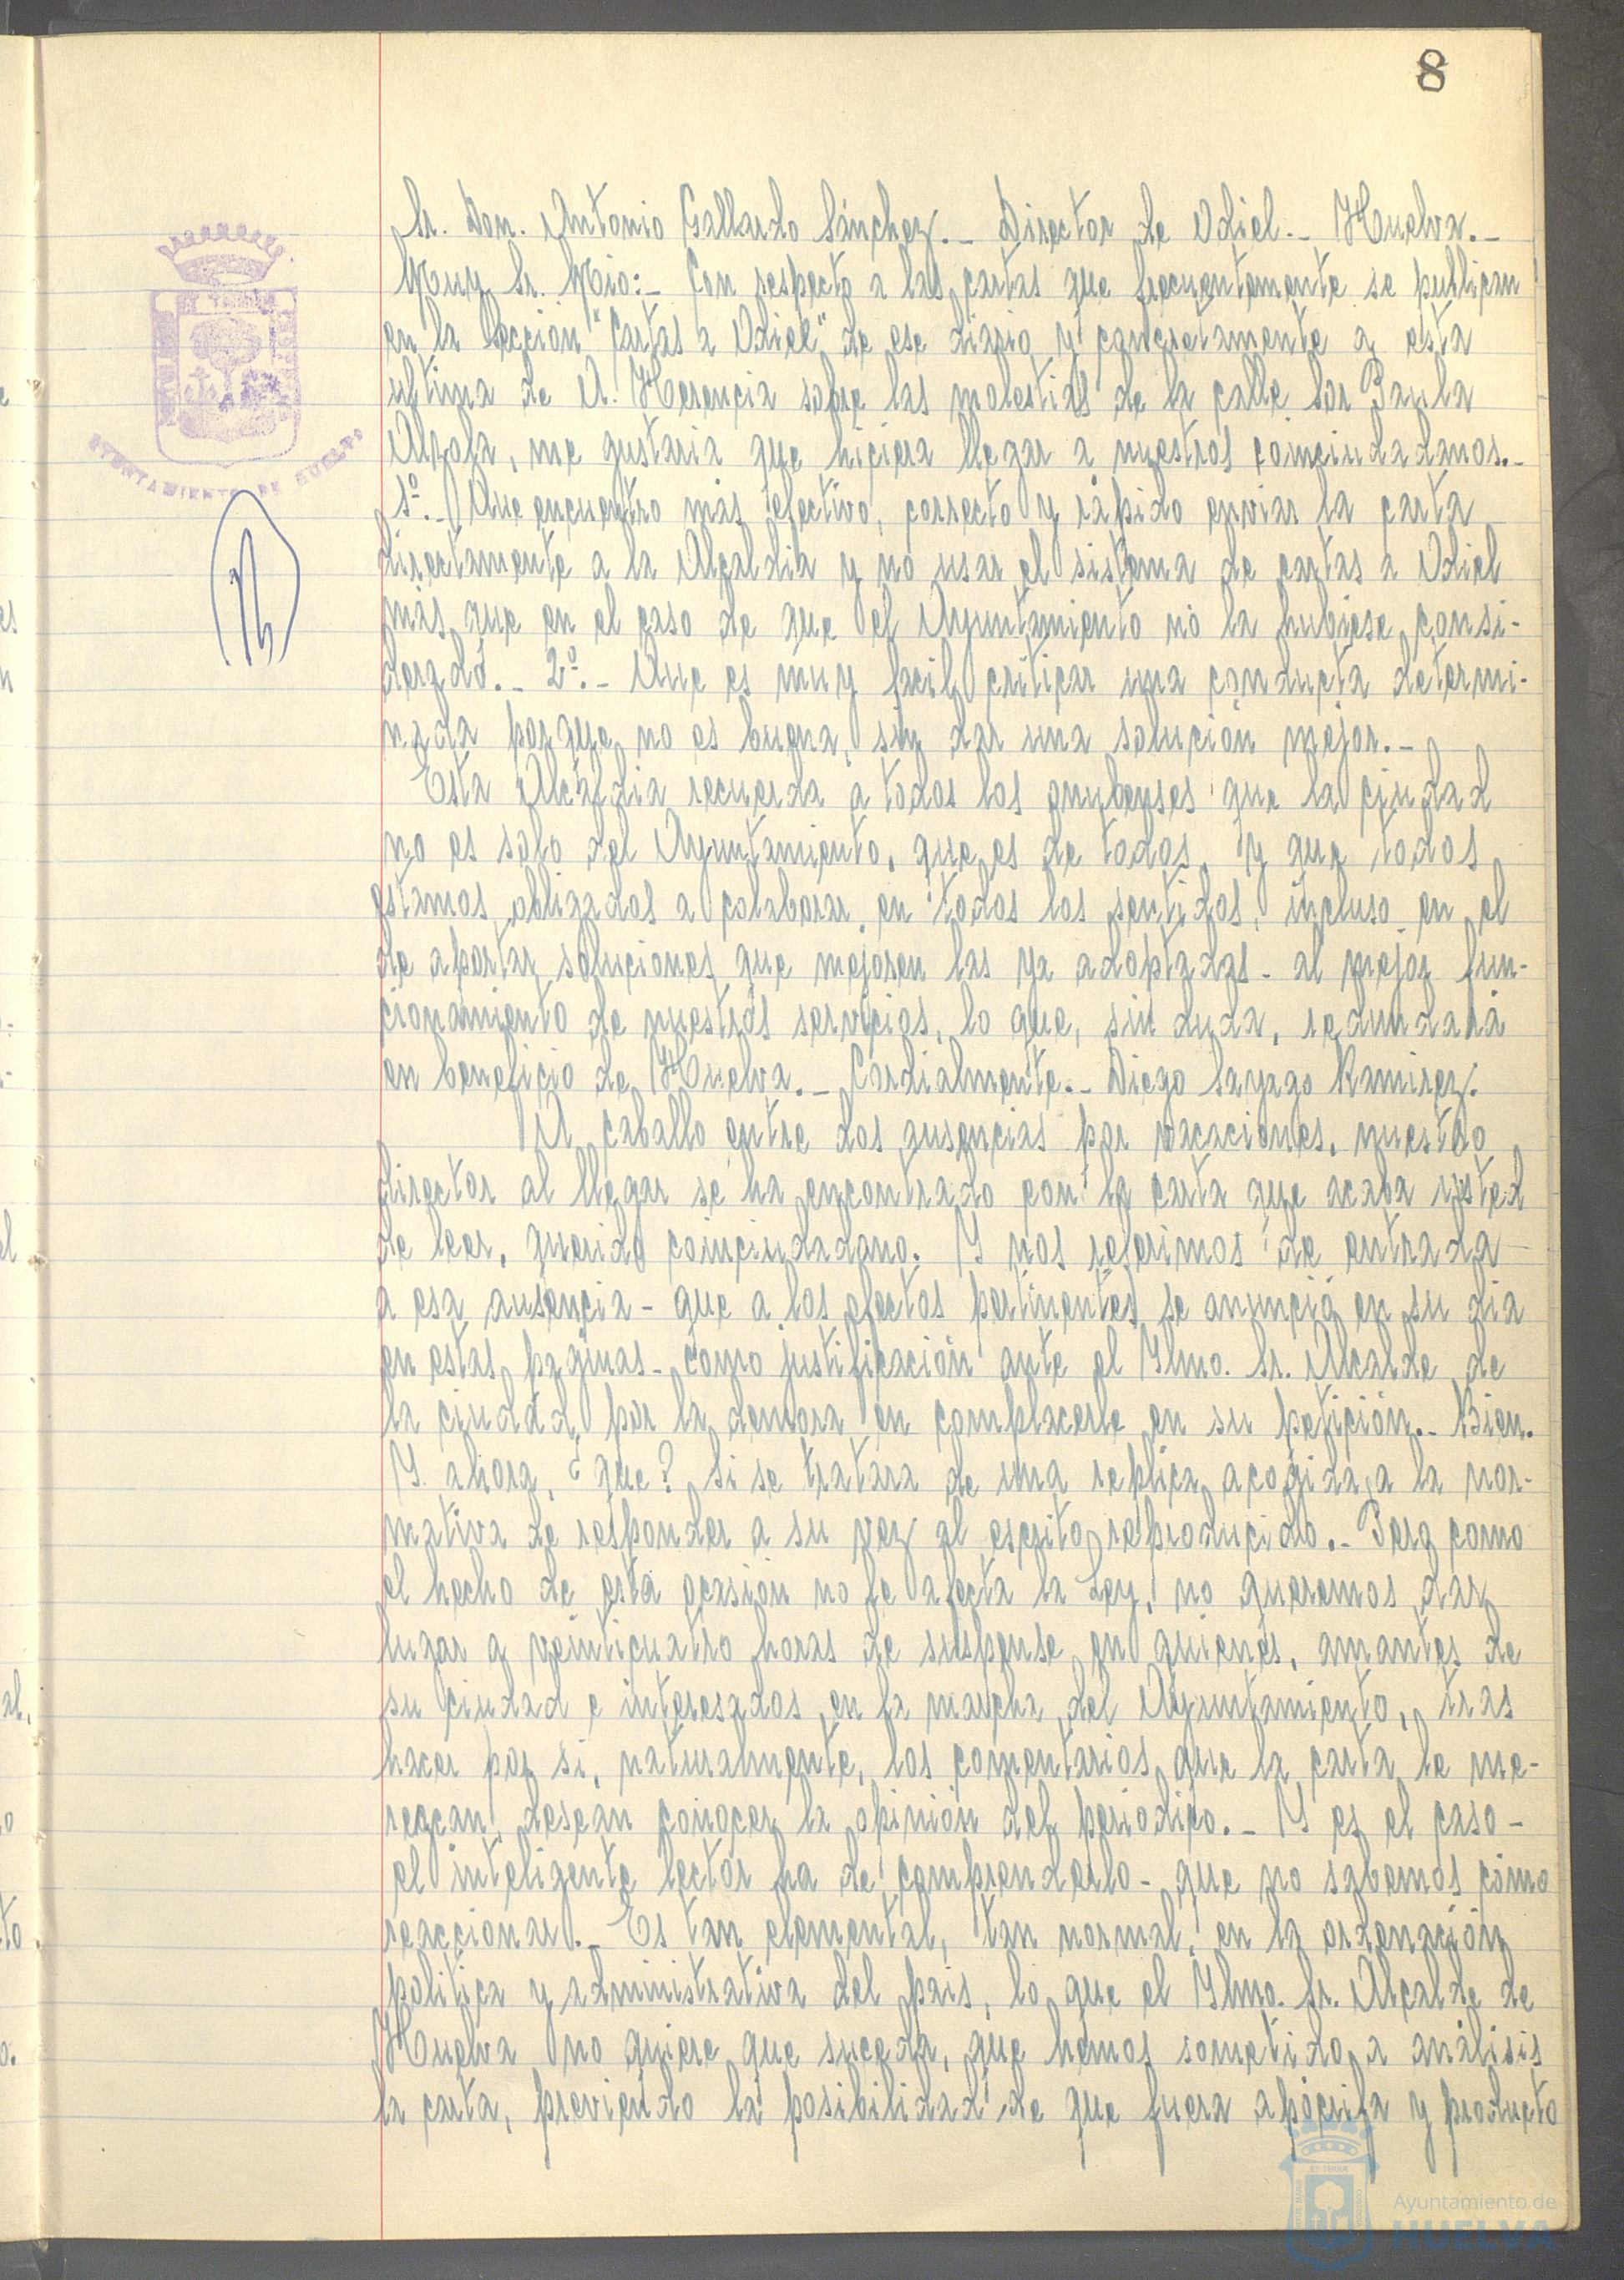 8
Sr. Don. Antonio Gallardo Sánchez.- Director de Odiel.- Huelva.-
Muy Sr. Mio:- Con respecto a las cartas que frecuentemente se publican
en la Sección "Cartas a Odiel" de ese diario y concretamente a esta
ultima de A. Herencia sobre las molestias de la calle Sor Paula
Alzola, me gustaria que hiciera llegar a nuestros coinciudadanos.-
1º.- Que encuentro más efectivo, correcto y rápido enviar la carta
directamente a la Alcaldia y no usar el sistema de cartas a Odiel
más que en el caso de que el Ayuntamiento no la hubiese consi-
derado.- 2º.- Que es muy facil criticar una conducta determi-
nada porque no es buena, sin dar una solución mejor.-
Esta Alcaldia recuerda a todos los onubenses que la ciudad
no es solo del Ayuntamiento, que es de todos, y que todos
estamos obligados a colaborar en todos los sentidos, incluso en el
de aportar soluciones que mejoren las ya adoptadas- al mejor fun-
cionamiento de nuestros servicios, lo que, sin duda, redundará
en beneficio de Huelva.- Cordialmente.- Diego Sayago Ramirez.
A caballo entre dos ausencias por vacaciones, nuestro
director al llegar se ha encontrado con la carta que acaba usted
de leer, querido coinciudadano. Y nos referimos de entrada
a esa ausencia- que a los efectos pertinentes se anunció en su dia
en estas páginas- como justificación ante el Ylmo. Sr. Alcalde de
la ciudad, por la demora en complacerle en su petición.- Bien.
Y ahora, ¿que? Si se tratara de una replica acogida a la nor-
mativa de responder a su vez al escrito reproducido.- Pero como
el hecho de esta ocasión no le afecta la Ley, no queremos dar
lugar a veinticuatro horas de suspense en quienes, amantes de
su ciudad e interesados en la marcha del Ayuntamiento, tras
hacer por si, naturalmente, los comentarios que la carta le me-
rezcan, desean conocer la opinión del periodico.- Y es el caso-
el inteligente lector ha de comprenderlo- que no sabemos cómo
reaccionar.- Es tan elemental, tan normal, en la ordenación
politica y administrativa del pais, lo que el Ylmo. Sr. Alcalde de
Huelva no quiere que suceda, que hemos sometido a análisis
la carta, previendo la posibilidad de que fuera apócrifa y producto
AYUNTAMIENTO DE HUELVA
Ayuntamiento de
HUELVA